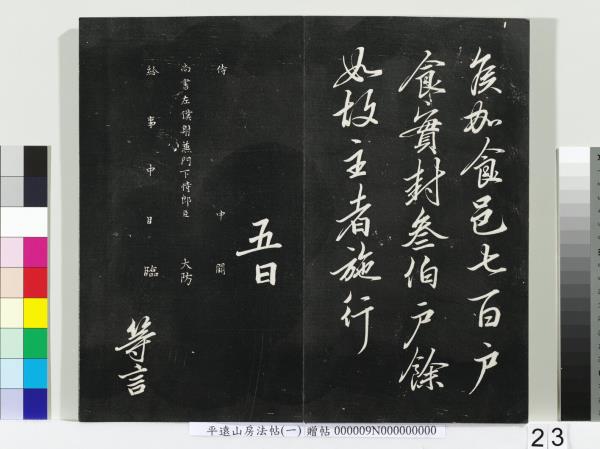 侯加食邑七百户
食實封叁伯户餘
如故主者施行
五日
侍 中 闕
尚書左僕射兼門下侍郎臣 大防
給事中臣 臨
等言
平遠山房法帖(一) 贈帖 000009N000000000
23